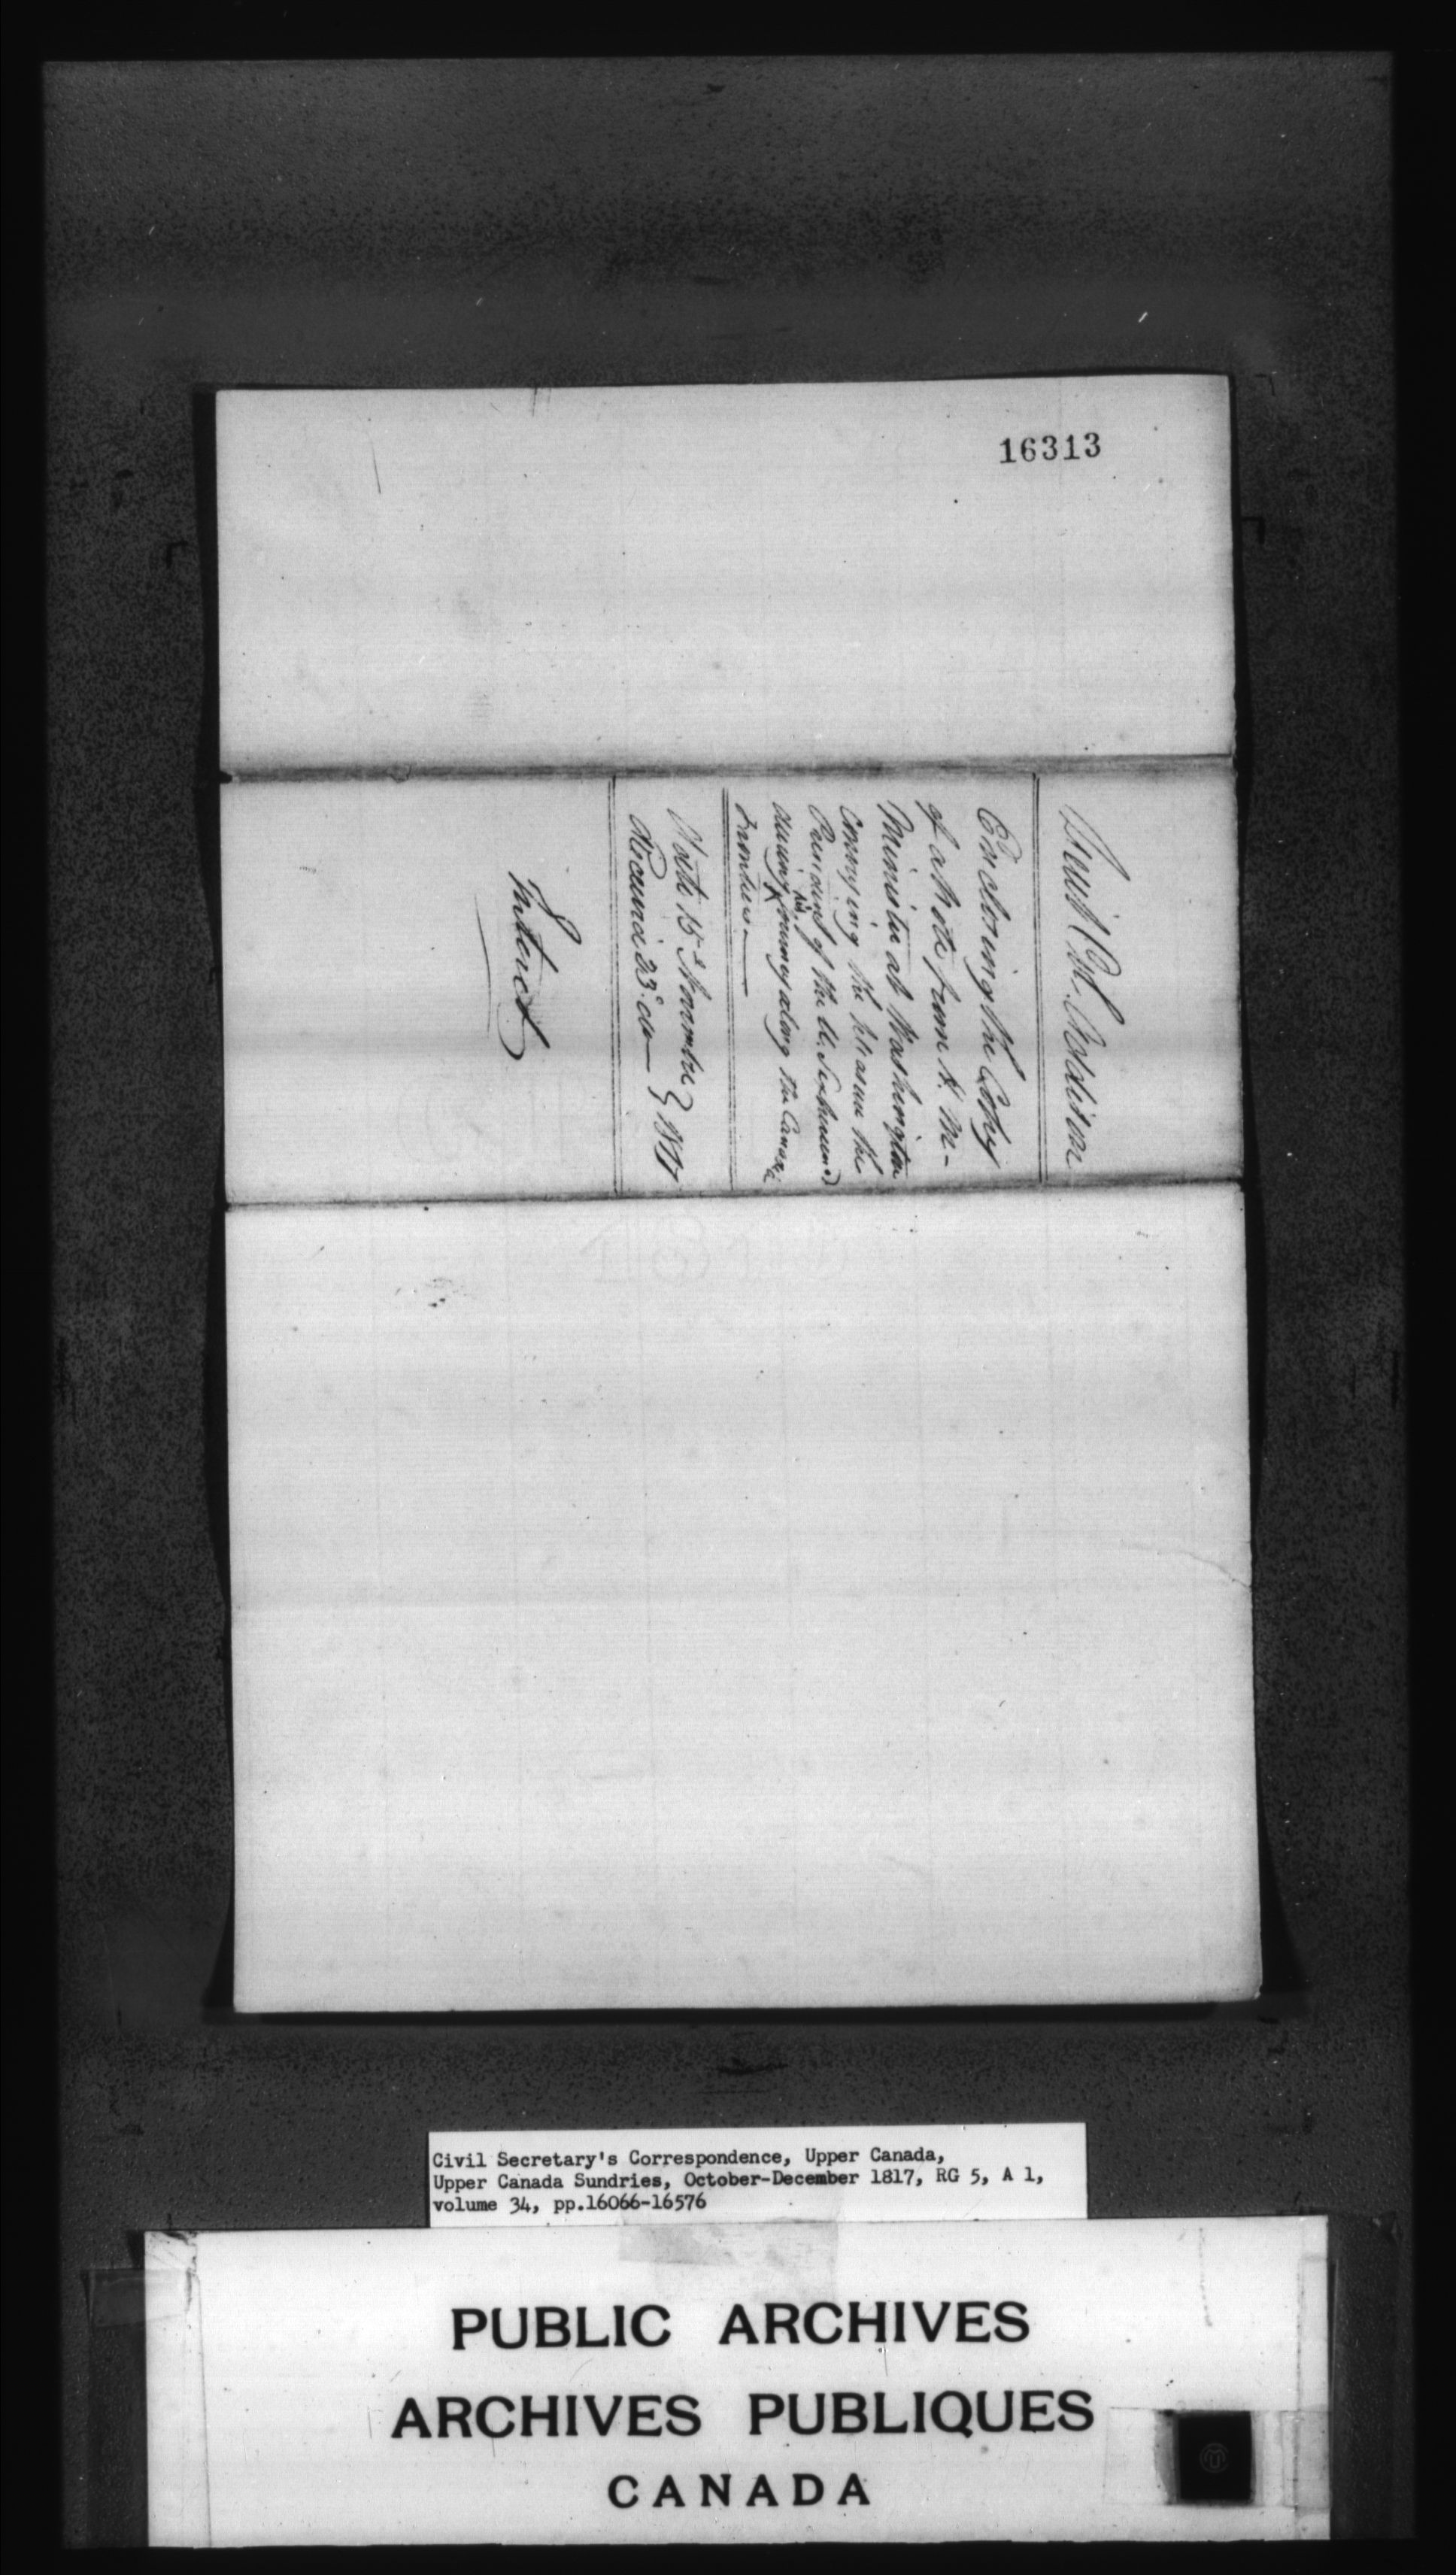 16313
Lieut Col. Addison
Enclosing the Copy
of a Note from H. M-
Minister at Washington
conveying the pleasure the
President of the U. S. expressed
during his journey along the Canada
Frontiers.—
Date 15th November } 1817
Received 23d do—
Entered
Civil Secretary's Correspondence, Upper Canada,
Upper Canada Sundries, October-December 1817, RG 5, A 1,
volume 34, pp.16066-16576
PUBLIC ARCHIVES
ARCHIVES PUBLIQUES
CANADA